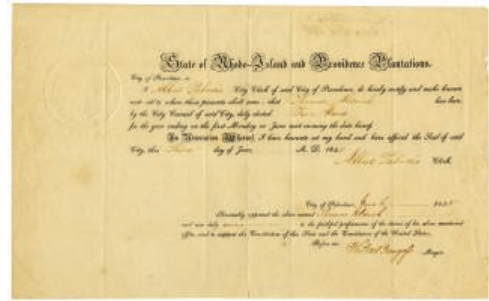 State of Rhode-Island and Providence Plantations.
City of Providence, sc.
I, Albert Pabodie City Clerk of said City of Providence, do hereby certify and make known
unto all to whom these presents shall come, that Thomas has been
by the City Council of said City, duly elected
for the year ending on the first Monday in June next ensuing the date hereof.
In Testimony Whereof, I have hereunto set my hand and have affixed the Seal of said
City, this day of June, A. D. 184
Albert Pabodie Clerk.
City of Providence, June 6 184
Personally appeared the above named Thomas
and was duly to the faithful performance of the duties of his above mentioned
office, and to support the Constitution of this State and the Constitution of the United States.
Before me, Mayor.